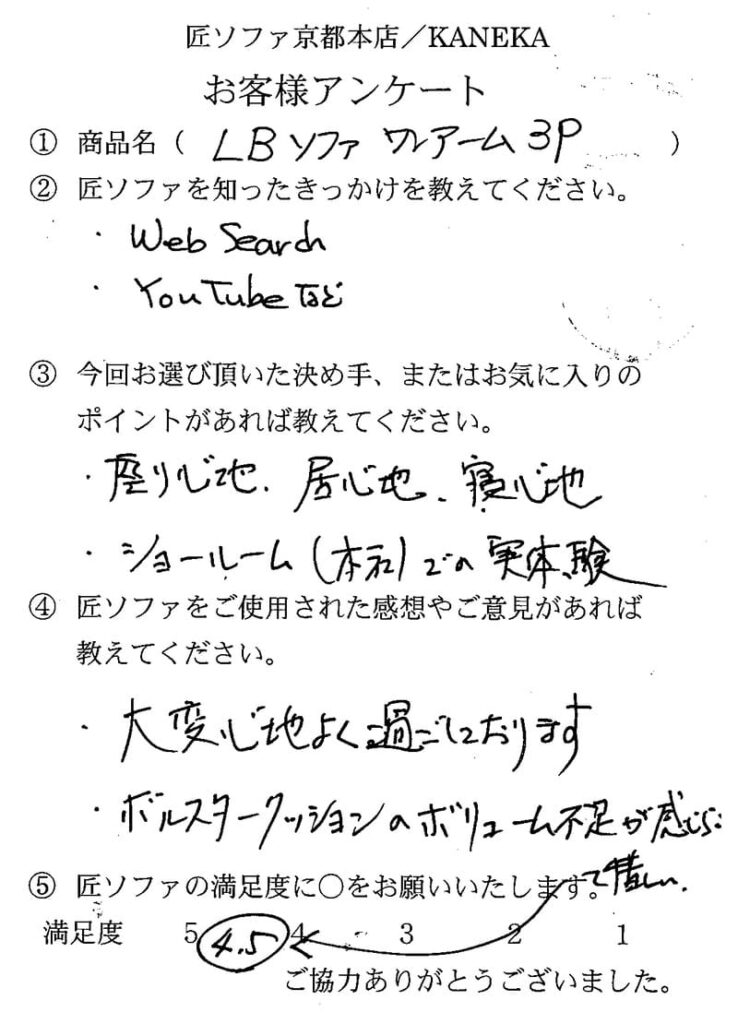 匠ソファ京都本店／KANEKA
お客様アンケート
① 商品名（ LBソファ ワンアーム 3P ）
② 匠ソファを知ったきっかけを教えてください。
・ Web Search
・ YouTubeなど
③ 今回お選び頂いた決め手、またはお気に入りの
ポイントがあれば教えてください。
・座り心地、居心地、寝心地
・ショールーム(本社)での実体験
④ 匠ソファをご使用された感想やご意見があれば
教えてください。
・大変心地よく過ごしております
・ボルスタークッションのボリューム不足が感じら
れ惜しい、
⑤ 匠ソファの満足度に○をお願いいたします。
満足度 5 4.5 4 3 2 1
ご協力ありがとうございました。